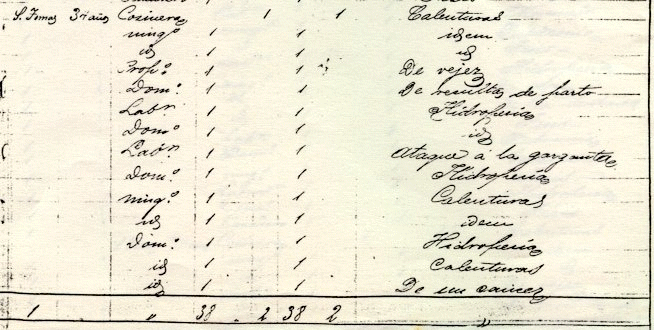 S. Tomas 37 años Cosinera 1 1 Calenturas
ning.º 1 1 idem
id 1 1 id
Prop.º 1 1 De vejez
Dom.º 1 1 De resultas de parto
Labr. 1 1 Hidropesia
Dom.º 1 1 id
Labr. 1 1 Ataque á la garganta
Dom.º 1 1 Hidropesia
ning.º 1 1 Calenturas
id 1 1 idem
Dom.º 1 1 Hidropesia
id 1 1 Calenturas
id 1 1 De un cancer
1 " 38 2 38 2 "